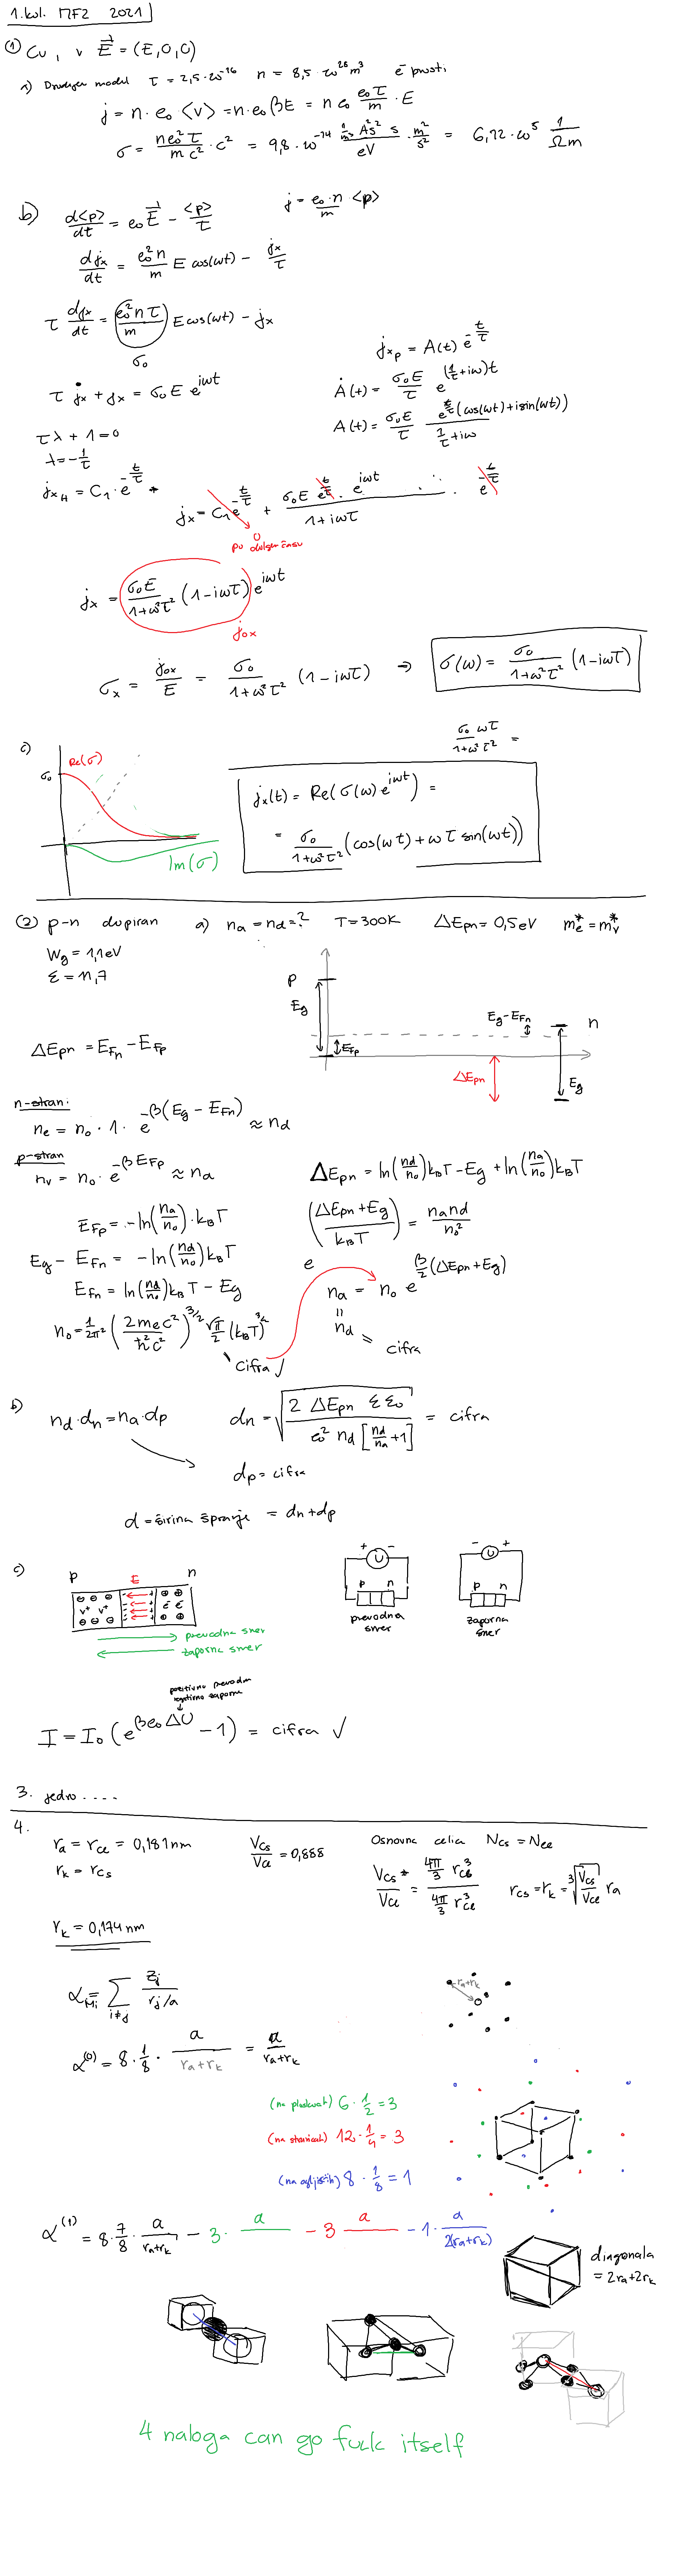 1. kol. MF2 2021
① Cu, v E⃗ = (E,0,0)
a) Drudejev model τ = 2,5·10⁻¹⁶ n = 8,5·10²⁸ m³ e⁻ prosti
j = n·e₀·<v> = n·e₀βE = n e₀ (e₀τ/m)·E
σ = (ne₀²τ/mc²)·c² = 9,8·10⁻¹⁴ (1/m³ A²s² s/eV)·m²/s² = 6,12·10⁵ 1/Ωm
b) d<p>/dt = e₀E⃗ - <p>/τ j = (e₀·n/m)<p>
djx/dt = (e₀²n/m) E cos(ωt) - jx/τ
τ djx/dt = (e₀²nτ/m) E cos(ωt) - jx
σ₀
jxp = A(t) e^(-t/τ)
τ j̇x + jx = σ₀E e^(iωt)
Ȧ(t) = (σ₀E/τ) e^((1/τ+iω)t)
τλ + 1 = 0
A(t) = (σ₀E/τ) e^(t/τ)(cos(ωt)+isin(ωt))/(1/τ+iω)
λ = -1/τ
jxH = C₁·e^(-t/τ)
jx = C₁e^(-t/τ) + (σ₀E e^(t/τ)·e^(iωt))/(1+iωτ) · e^(-t/τ)
0
po dolgem času
jx = (σ₀E/(1+ω²τ²))(1-iωτ) e^(iωt)
j₀x
σx = j₀x/E = (σ₀/(1+ω²τ²))(1-iωτ) → σ(ω) = (σ₀/(1+ω²τ²))(1-iωτ)
c) σ₀ Re(σ) Im(σ)
σ₀ωτ/(1+ω²τ²) =
jx(t) = Re(σ(ω)e^(iωt)) =
= (σ₀/(1+ω²τ²))(cos(ωt)+ωτ sin(ωt))
② p-n dopiran a) na = nd = ? T = 300K ΔEpn = 0,5eV me* = mv*
Wg = 1,1eV
ε = 11,7
p Eg EFp Eg-EFn n ΔEpn Eg
ΔEpn = EFn - EFp
n-stran:
ne = n₀·1·e^(-β(Eg-EFn)) ≈ nd
p-stran
nv = n₀·e^(-βEFp) ≈ na
ΔEpn = ln(nd/n₀)kBT - Eg + ln(na/n₀)kBT
EFp = -ln(na/n₀)·kBT
e^((ΔEpn+Eg)/kBT) = nand/n₀²
Eg - EFn = -ln(nd/n₀)kBT
EFn = ln(nd/n₀)kBT - Eg
na = n₀ e^(β/2(ΔEpn+Eg))
=
nd = cifra
n₀ = (1/2π²)(2mec²/ħ²c²)^(3/2) (√π/2)(kBT)^(3/2)
cifra ✓
b) nd·dn = na·dp dn = √(2 ΔEpn εε₀/(e₀² nd[nd/na+1])) = cifra
dp = cifra
d = širina špranje = dn+dp
c) p E n
v⁺ v⁺ e⁻ e⁻
prevodna smer
zaporna smer
+ U - p n prevodna smer
- U + p n zaporna smer
pozitivna prevodna
negativna zaporna
I = I₀(e^(βe₀ΔU) - 1) = cifra ✓
3. jedro ....
4.
ra = rCl = 0,181nm VCs/VCl = 0,888 Osnovna celica NCs = NCl
rk = rCs
VCs/VCl = (4π/3 rCs³)/(4π/3 rCl³) rCs = rk = ³√(VCs/VCl) ra
rk = 0,174nm
αMi = Σ i≠j zj/(rj/a)
ra+rk
α⁽⁰⁾ = 8·1/8·a/(ra+rk) = a/(ra+rk)
(na ploskvah) 6·1/2 = 3
(na stranicah) 12·1/4 = 3
(na ogljiščih) 8·1/8 = 1
α⁽¹⁾ = 8·7/8·a/(ra+rk) - 3·a/ - 3 a/ - 1·a/(2(ra+rk))
diagonala
= 2ra+2rk
4 naloga can go fuck itself